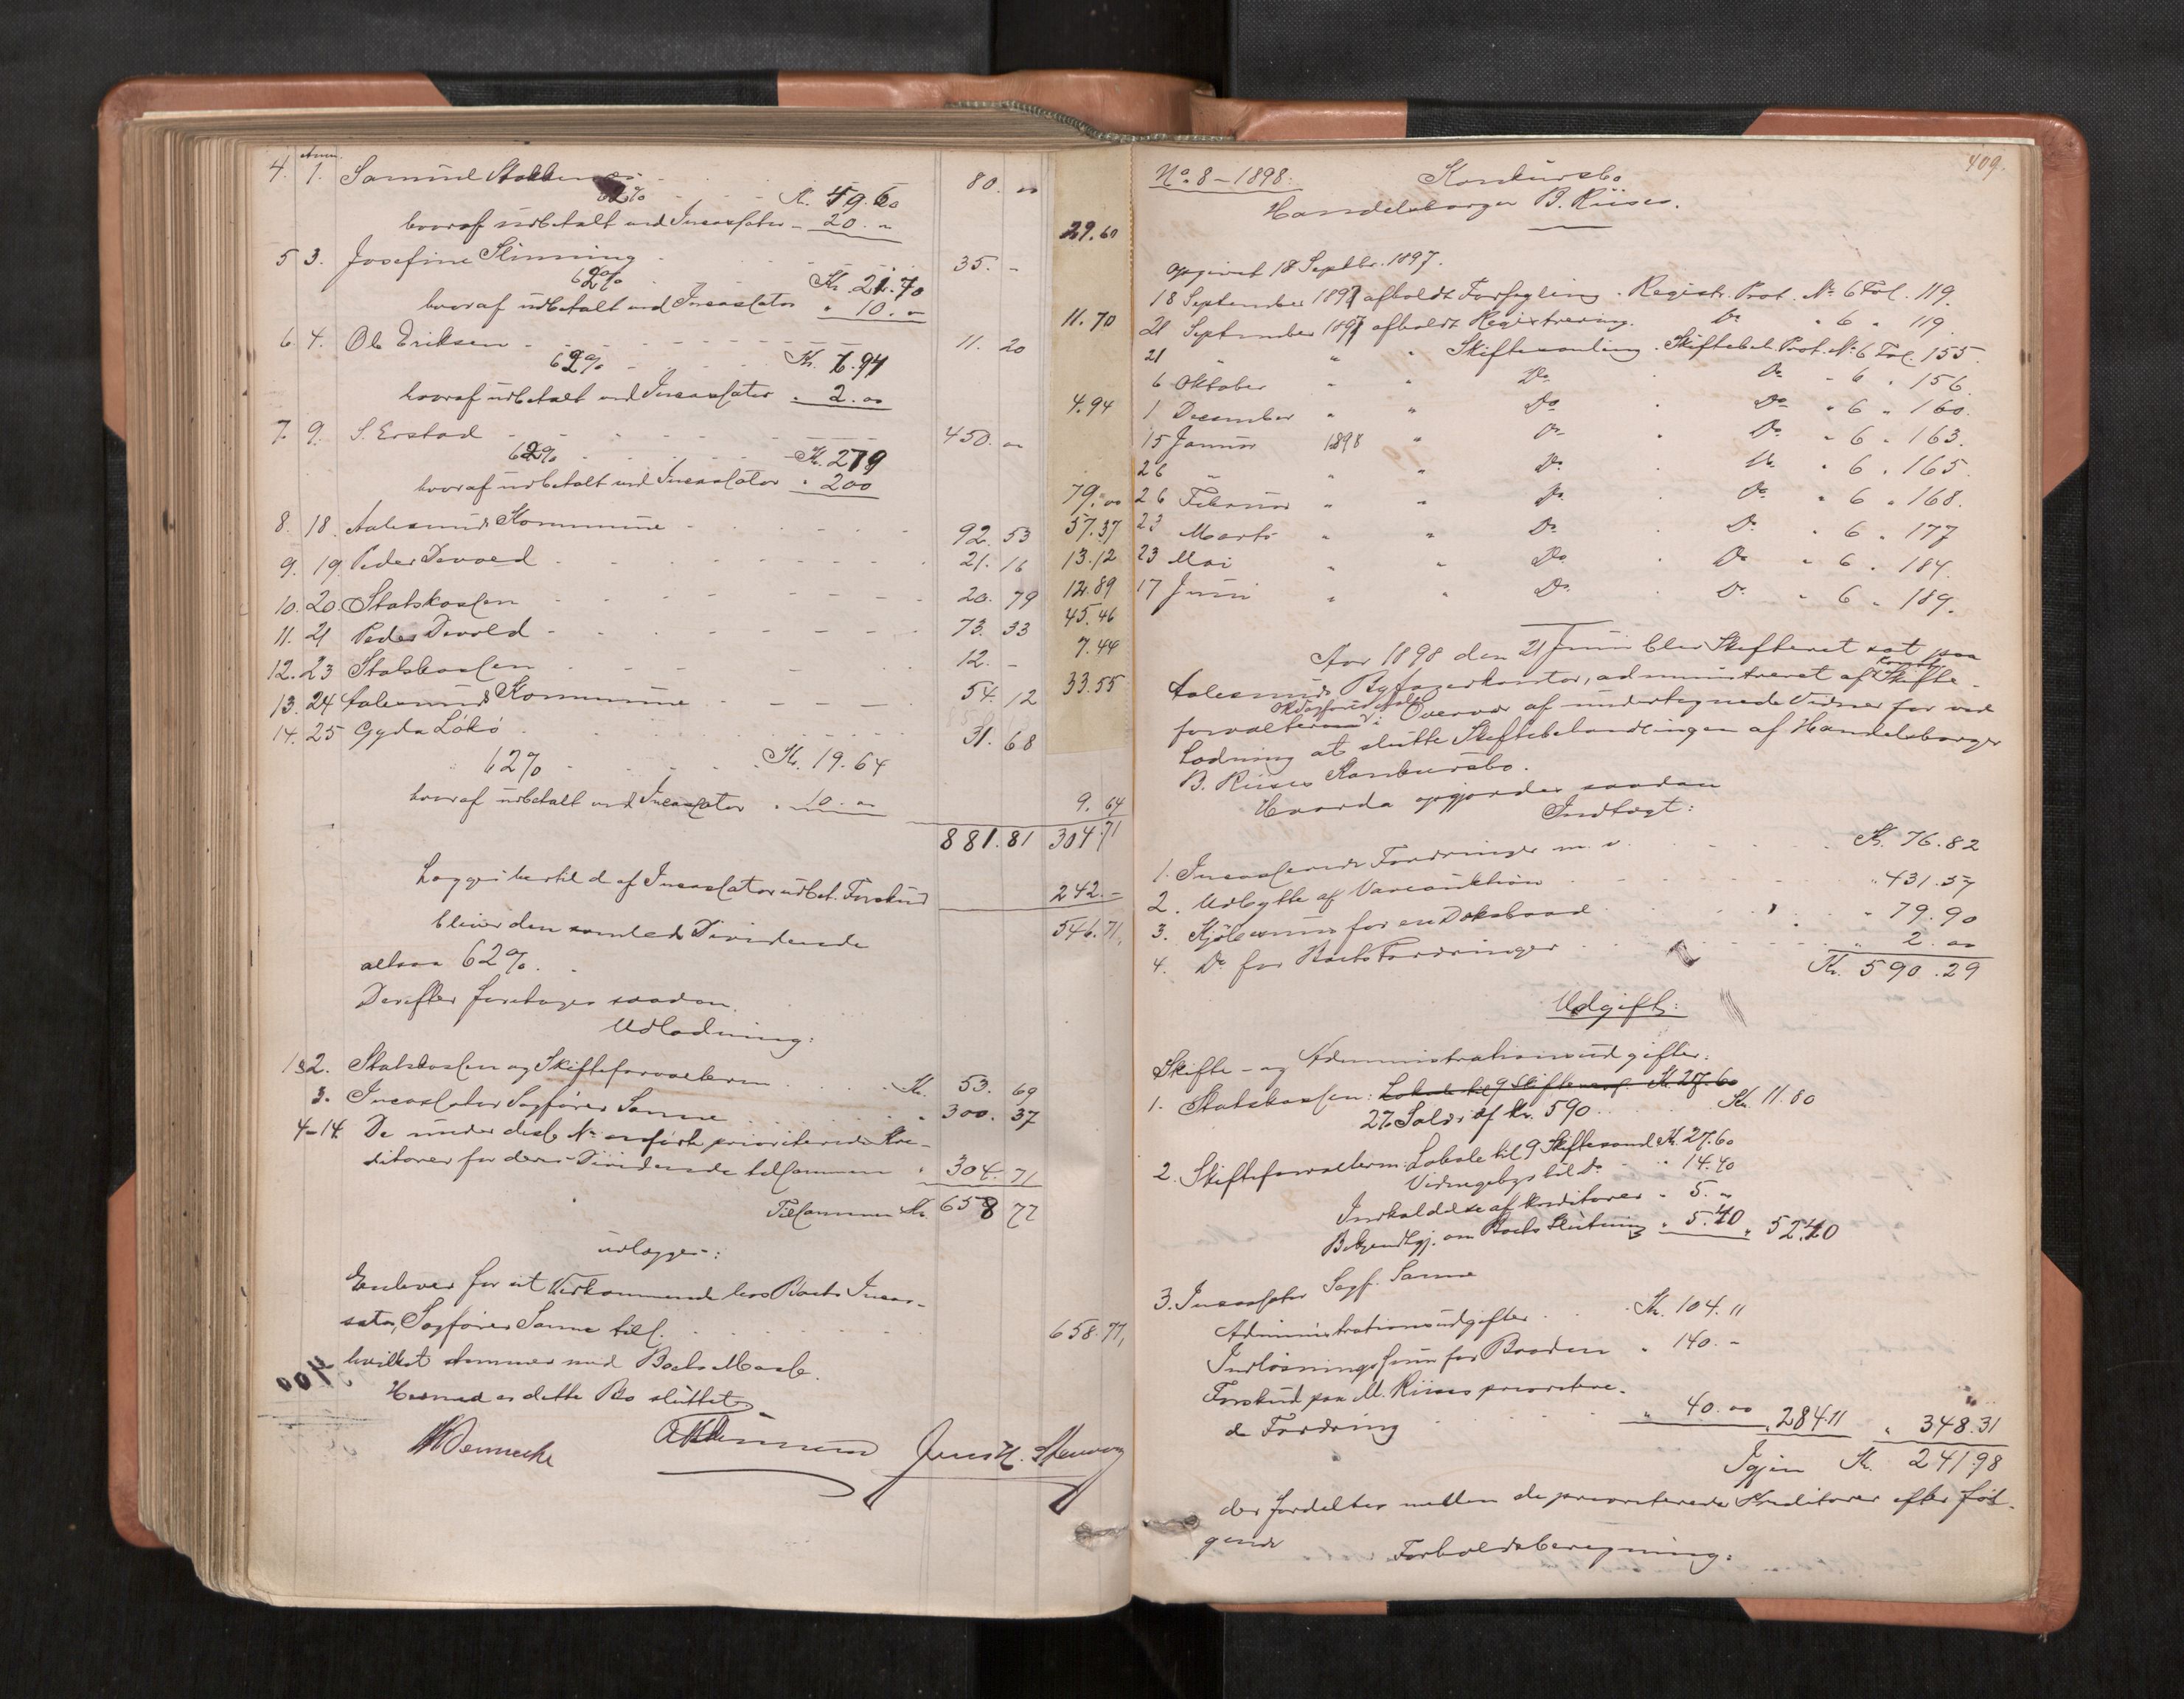 4. Anm. 1. Samuel 80. "
62% Kr. 49.60
hvoraf udbetalt ved Incassator - 20. " 29.60
5 3. Josefine Slinning 35. -
62% Kr. 21.70
hvoraf udbetalt ved Incassator " 10. " 11.70
6. 4. Ole Eriksen 11. 20
62% Kr. 6.94
hvoraf udbetalt ved Incassator " 2.00 4.94
7. 9. S. Erstad 450. "
62% Kr. 279
hvoraf udbetalt ved Incassator " 200 79."00
8. 18. Aalesunds Kommune 92. 53 57.37
9. 19. Peder Devold 21. 16 13.12
10. 20. Statskassen 20. 79 12.89
11. 21 Peder Devold 73. 33 45.46
12. 23 Statskassen 12. - 7.44
13. 24 Aalesunds Kommune 54. 12 33.55
14. 25 Gyda Lökö 31. 68
62% Kr. 19.64
hvoraf udbetalt ved Incassator " 10. " 9. 64
881.81 304.71
Lægges hertil d. af Incassator udbet. Forskud 242.-
bliver den samlede Dividende 546.71,
altsaa 62%.
Derefter foretages saadan
Udlodning:
1&2. Statskassen og Skifteforvalteren Kr. 53. 69
3. Incassator Sagfører Sanne " 300. 37
4-14. De under disse No anførte prioriterede Kre-
ditorer for deres Dividende tilsammen " 304. 71
Tilsammen Kr. 658 77
udlægges:
Enhver for sit Vedkommende hos Boets Incas-
sator, Sagfører Sanne till. 658.77,
hvilket stemmer med Boets Masse.
400
Hermed er dette Bo sluttet
409.
No. 8 - 1898. Konkursbo
Handelsborger B. Riises.
opgivet 18 Septbr. 1897.
18 September 1897 afholdt Forsegling. Registr. Prot. No 6 Fol. 119.
21 September 1897 afholdt Registrering. Do " 6 " 119
21 " " " Skiftesamling. Skiftebeh. Prot. No 6 Fol. 155.
6 Oktober " " Do. Do " 6 " 156
1 December " " Do Do " 6 " 160.
15 Januar 1898 " Do Do " 6 " 163.
26 " " " Do. Do. " 6 " 165.
26 Februar " " Do. Do " 6 " 168.
23 Marts " " Do. Do. " 6 " 177
23 Mai " " Do Do " 6 " 184.
17 Juni " " Do. Do. " 6 " 189.
Aar 1898 den 21 Juni blev Skifteret sat paa
Aalesunds Byfogedkontor, administreret af Konst. Skifte-
forvalter i Overvær af undertegnede Vidner for ved
Lodning at slutte Skiftebehandlingen af Handelsborger
B. Riises Konkursbo.
Hvorda opgjordes saadan
Indtægt:
1. Incasserede Fordringer m. v. Kr. 76.82
2. Udbytte af Vareauktion " 431.57
3. Kjöbesum for en Dæksbaad " 79.90
4. Do for Boets Fordringer " 2.00
Kr. 590.29
Udgift:
Skifte- og Administrationsudgifter.
1. Statskassen: Lokale til 9 Skiftesaml. Kr. 27.60
2% Salær af Kr. 590 Kr. 11.80
2. Skifteforvalteren: Lokale til 9 Skiftesaml. Kr. 27.60
Vidnegebyr til Do " 14.40
Indkaldelse af Kreditorer " 5. "
Bekjendtgj. om Boets Slutning " 5.40 " 52.40
3. Incassator Sagf. Sanne
Administrationsudgifter Kr. 104.11
Indløsningssum for Baaden " 140. -
Forskud paa M. Riises prioritere-
de Fordring " 40.00 " 284.11 " 348.31
Igjen Kr. 241.98
der fordeles mellem de prioriterede Kreditorer efter föl-
gende Forholdsberegning: